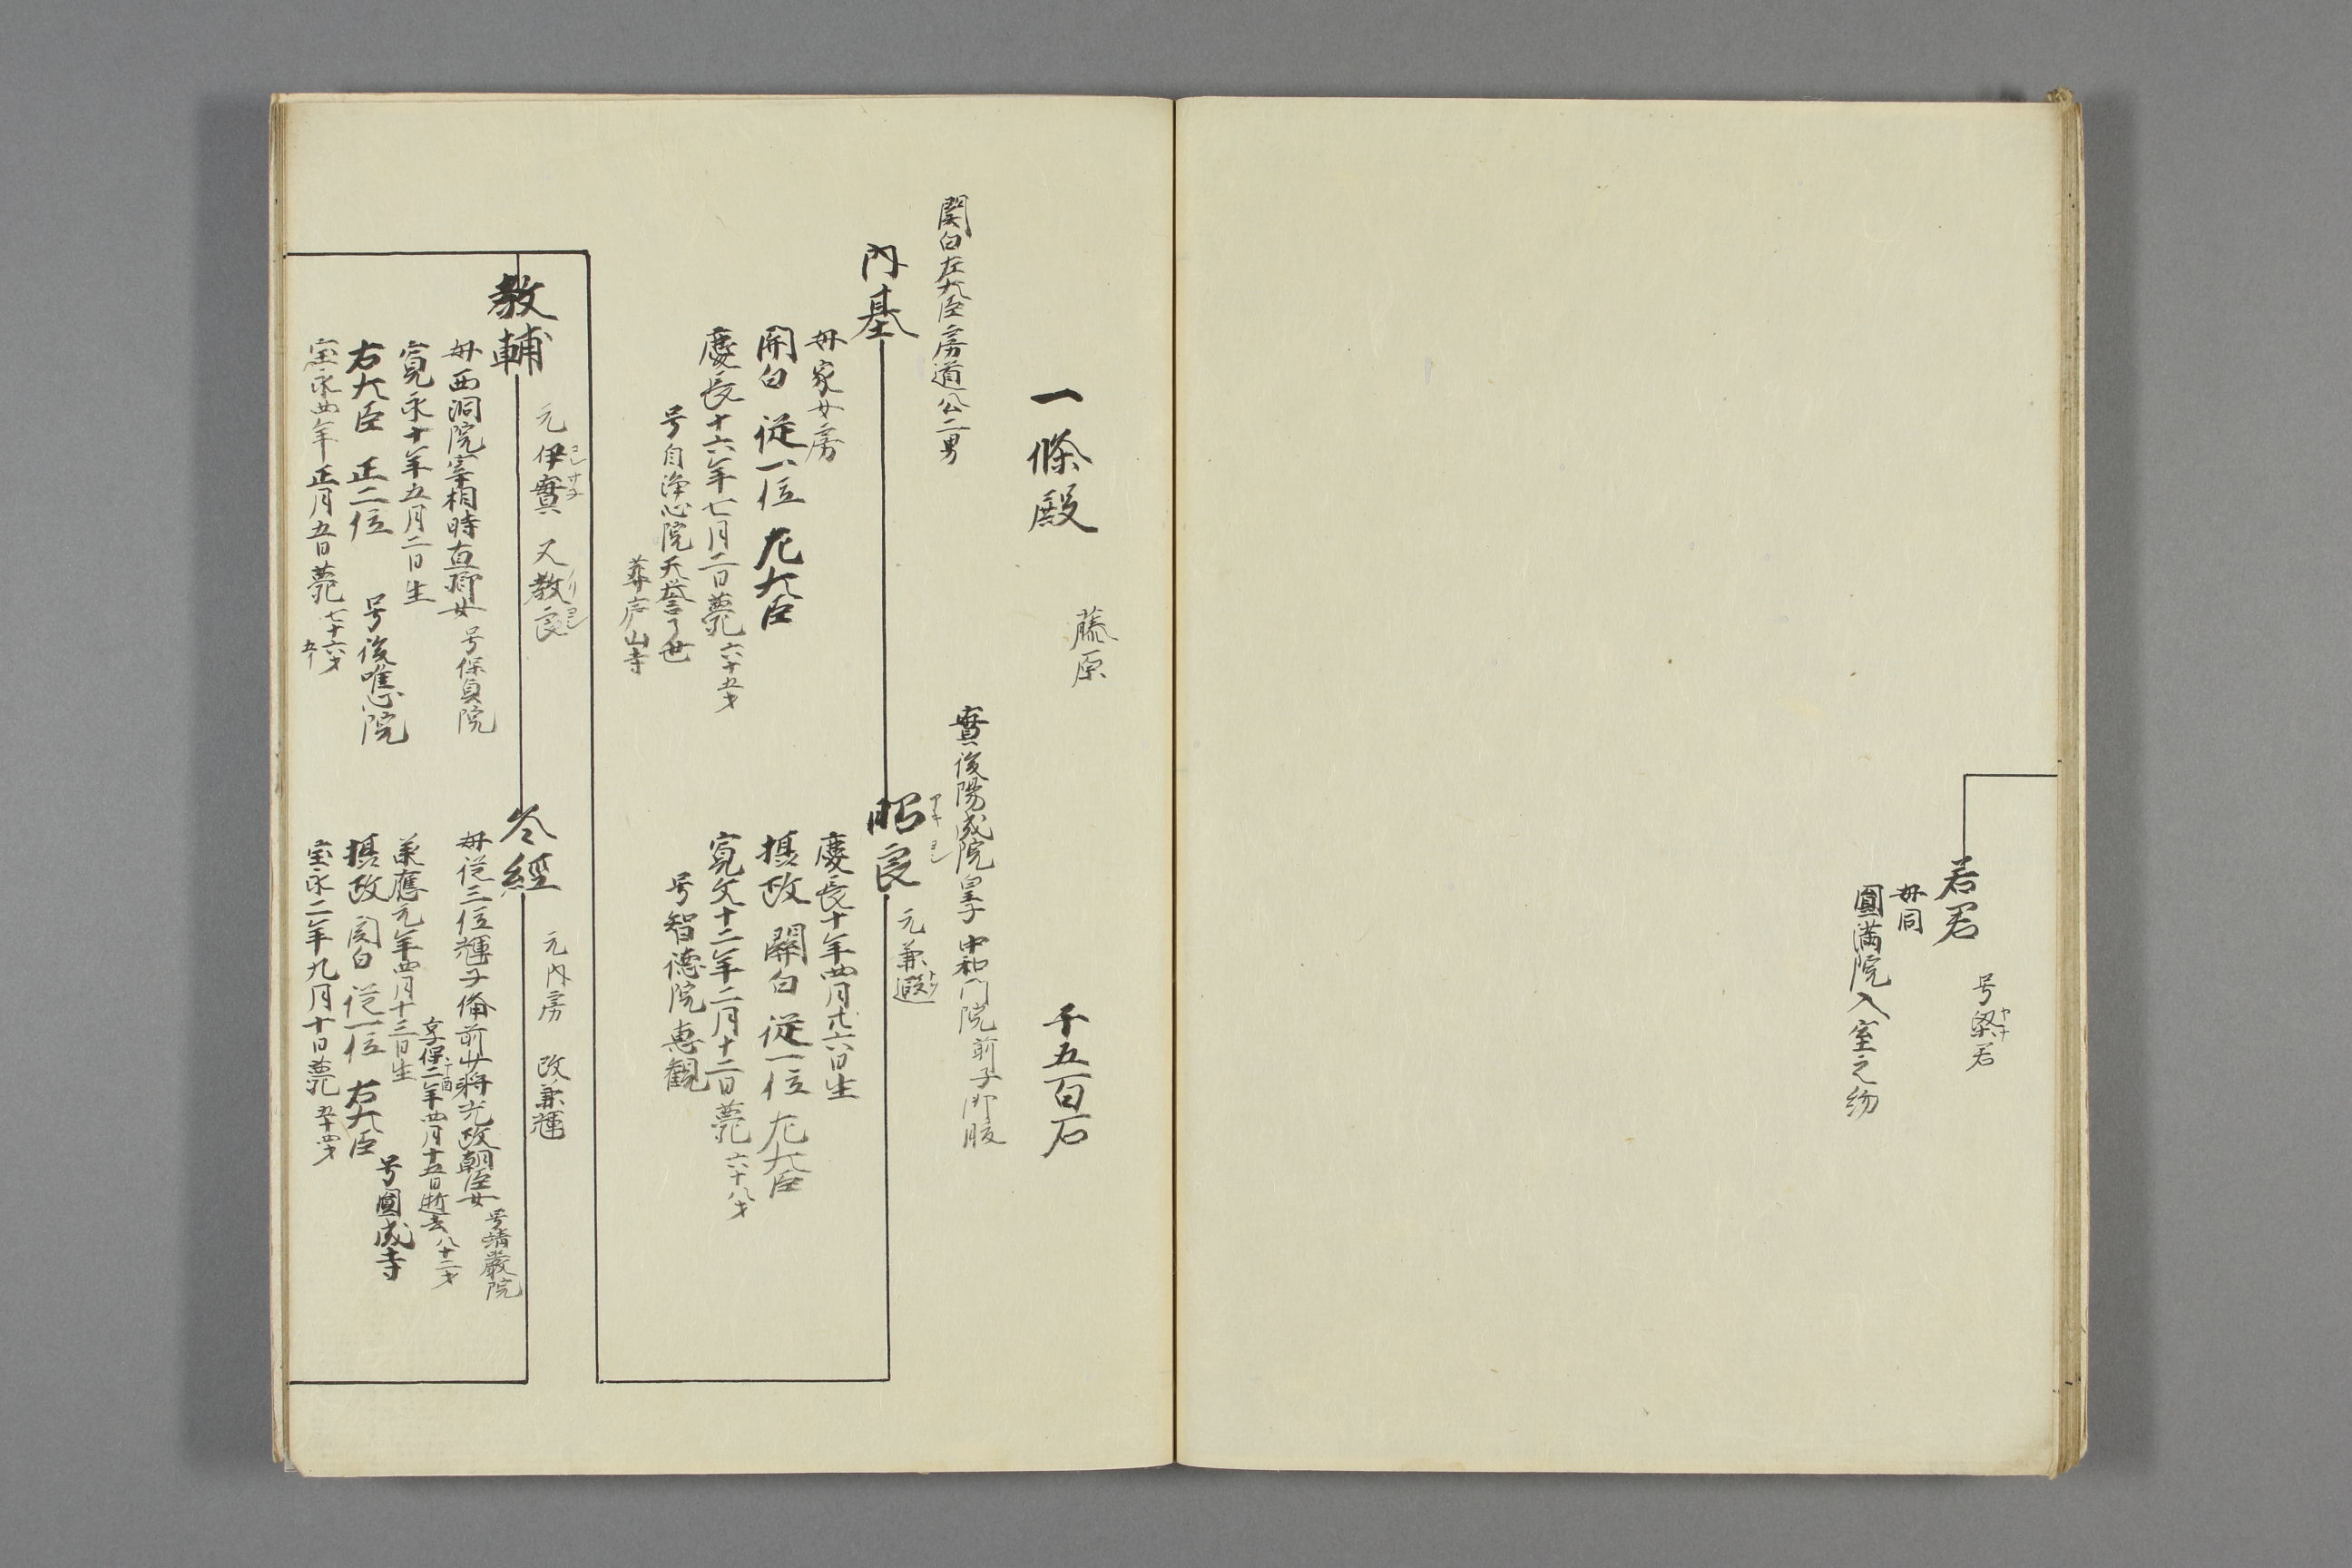 若君
号梁君
ヤナ
母同
圓満院入室之約
一條殿
藤原
千五百石
関白左大臣房道公二男
内基
母家女房
関白 従一位 左大臣
慶長十六年七月二日薨 六十五才
号自浄心院天誉了世
葬庐山寺
實後陽成院皇子 中和門院前子御腹
昭良
アキ ヨシ
元兼遐
慶長十年四月廿六日生
摂政 關白 従一位 左大臣
寛文十二年二月十二日薨 六十八才
号智德院恵観
教輔
元伊實 又教良
コレ サネ
ノリ ヨシ
母西洞院宰相時直卿女 号保貞院
寛永十年五月二日生
右大臣 正二位 号後唯心院
宝永四年正月五日薨 七十六才
五イ
冬經
元内房 改兼輝
母従三位輝子備前少将光政朝臣女 号靖嚴院
享保二年四月十五日逝去 八十二才
丁酉
承應元年四月十三日生
摂政 関白 従一位 右大臣 号圓成寺
宝永二年九月十日薨 五十四才